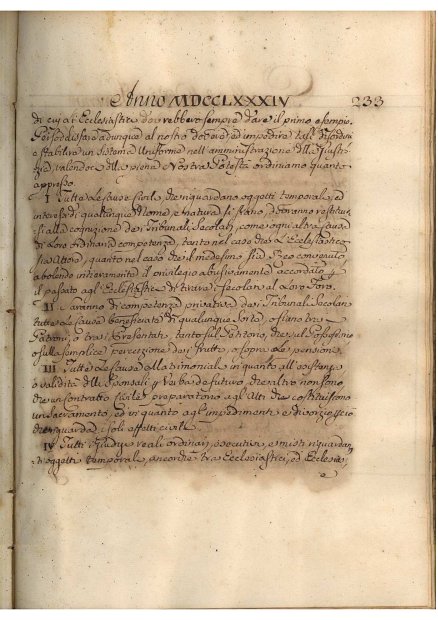 Anno MDCCLXXXIV 233
di cui gli Ecclesiastici dovrebbero sempre dare il primo esempio.
Per soddisfare adunque al nostro dovere, ed impedire tali disordini
e stabilire un sistema Uniforme nell'amministrazione della Giusti-
zia, valendoci della piena Nostra Potestà ordiniamo quanto
appresso.
I Tutte le Cause Civili, che riguardano oggetti temporali, ed
interessi di qualunque Nome, e Natura si siano, dovranno restituir-
si alla cognizione dei Tribunali Secolari, come ogni altra causa
di Loro ordinaria competenza, tanto nel caso che l'Ecclesiastico
sia Attore, quanto nel caso che il medesimo sia Reo convenuto,
abolendo intieramente il privilegio abusivamente accordato p
il passato agl'Ecclesiastici di tirare i Secolari al Loro Foro.
II Saranno di competenza privativa dei Tribunali Secolari
tutte le Cause beneficiali di qualunque Sorte, o siano tra
Patroni, o tra i Presentati, tanto sul Petitorio, che sul Possessorio
o sulla semplice percezione dei frutti, o sopra le pensioni.
III Tutte le Cause Matrimoniali in quanto all'esistenza
o validità delli Sponsali p Verba de futuro, che altro non sono
che un contratto Civile preparatorio agli Atti che costituiscono
un Sacramento, ed in quanto agl'impedimenti e divorzio, se ciò
che riguarda i soli effetti civili.
IV Tutti i Giudizj reali ordinarj, esecutivi, e misti riguardan-
ti oggetti temporali, ancorchè tra Ecclesiastici, ed Ecclesia-